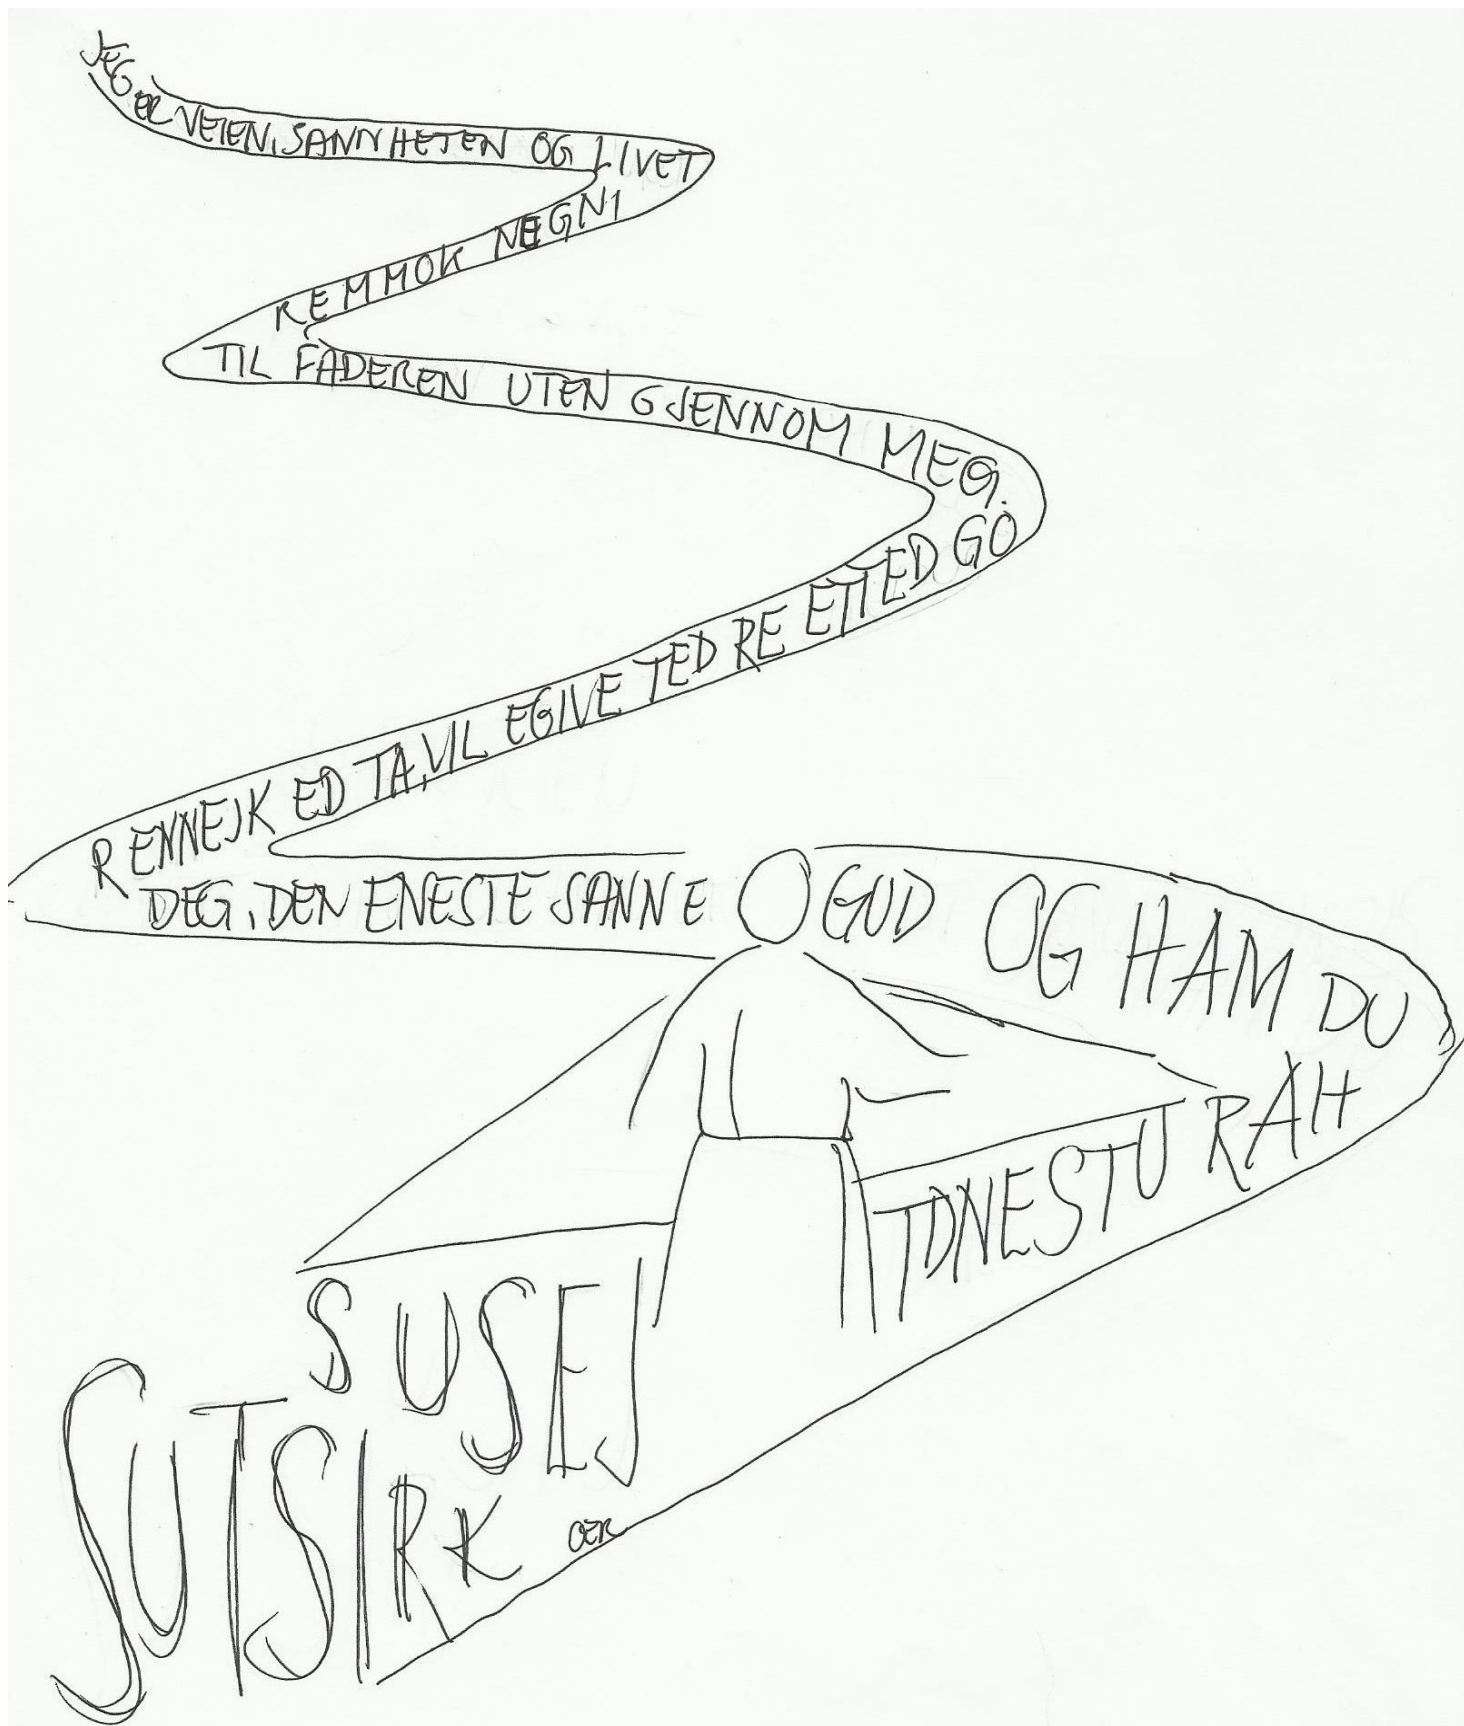 JEG ER VEIEN, SANNHETEN OG LIVET
REMMOK NEGNI
TIL FADEREN UTEN GJENNOM MEG.
RENNEJK ED TA, VIL EGIVE TED RE ETTED GO
DEG, DEN ENESTE SANNE GUD OG HAM DU
TDNESTU RAH
SUSEJ
SUTSIRK
OER